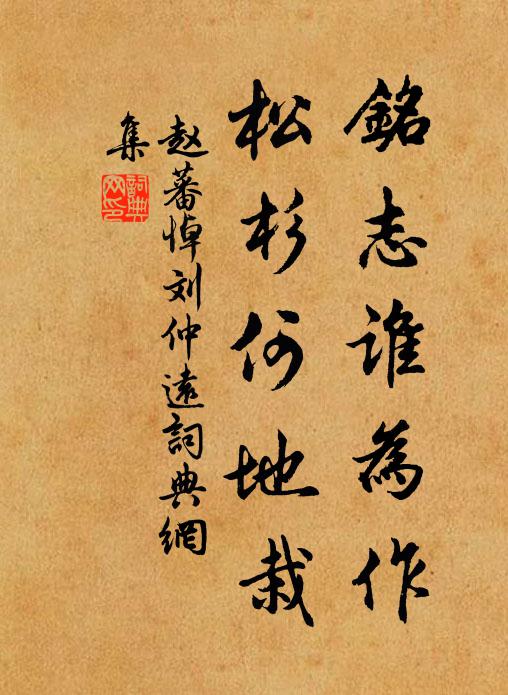 銘志誰為作
松杉何地栽
赵蕃悼刘仲遠詞典網
集
詞典
网印